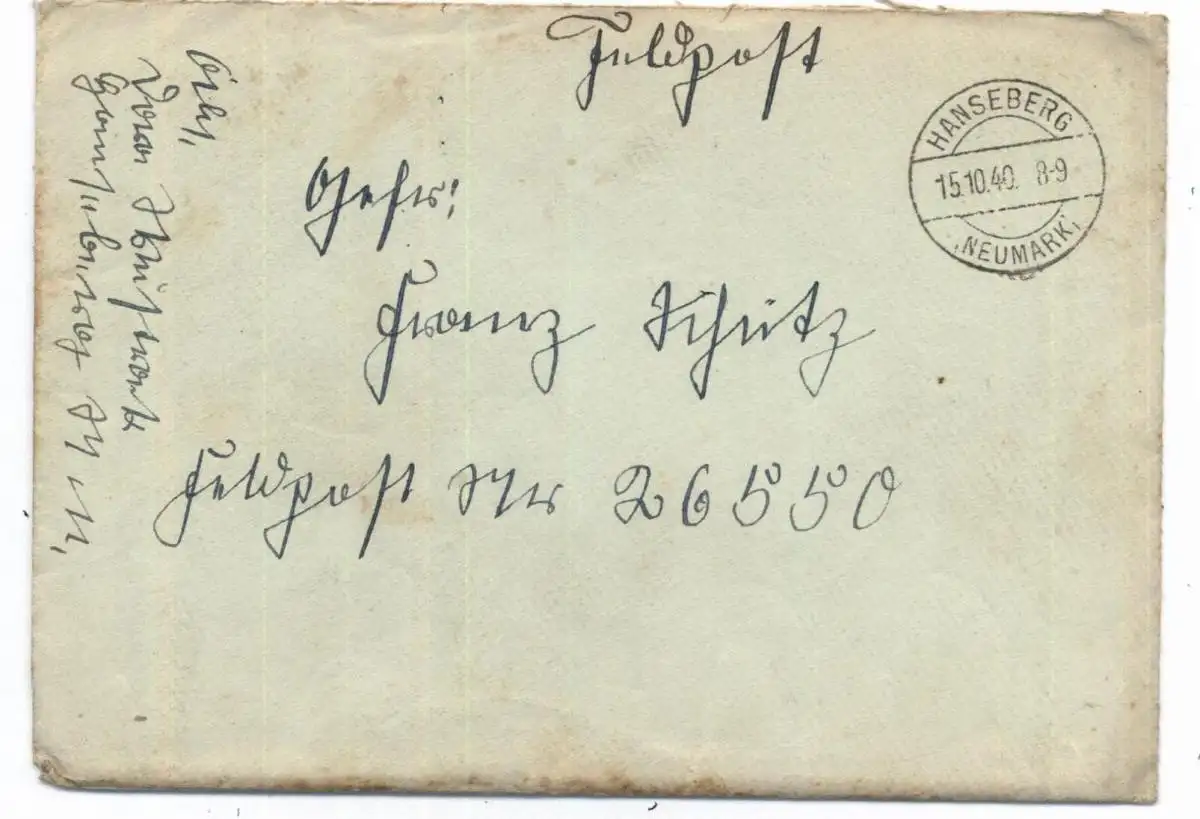 Feldpost
HANSEBERG
15.10.40. 8-9
(NEUMARK)
Gefr:
Franz Schütz
Feldpost Nr 26550
Abs,
Hanseberg N M,